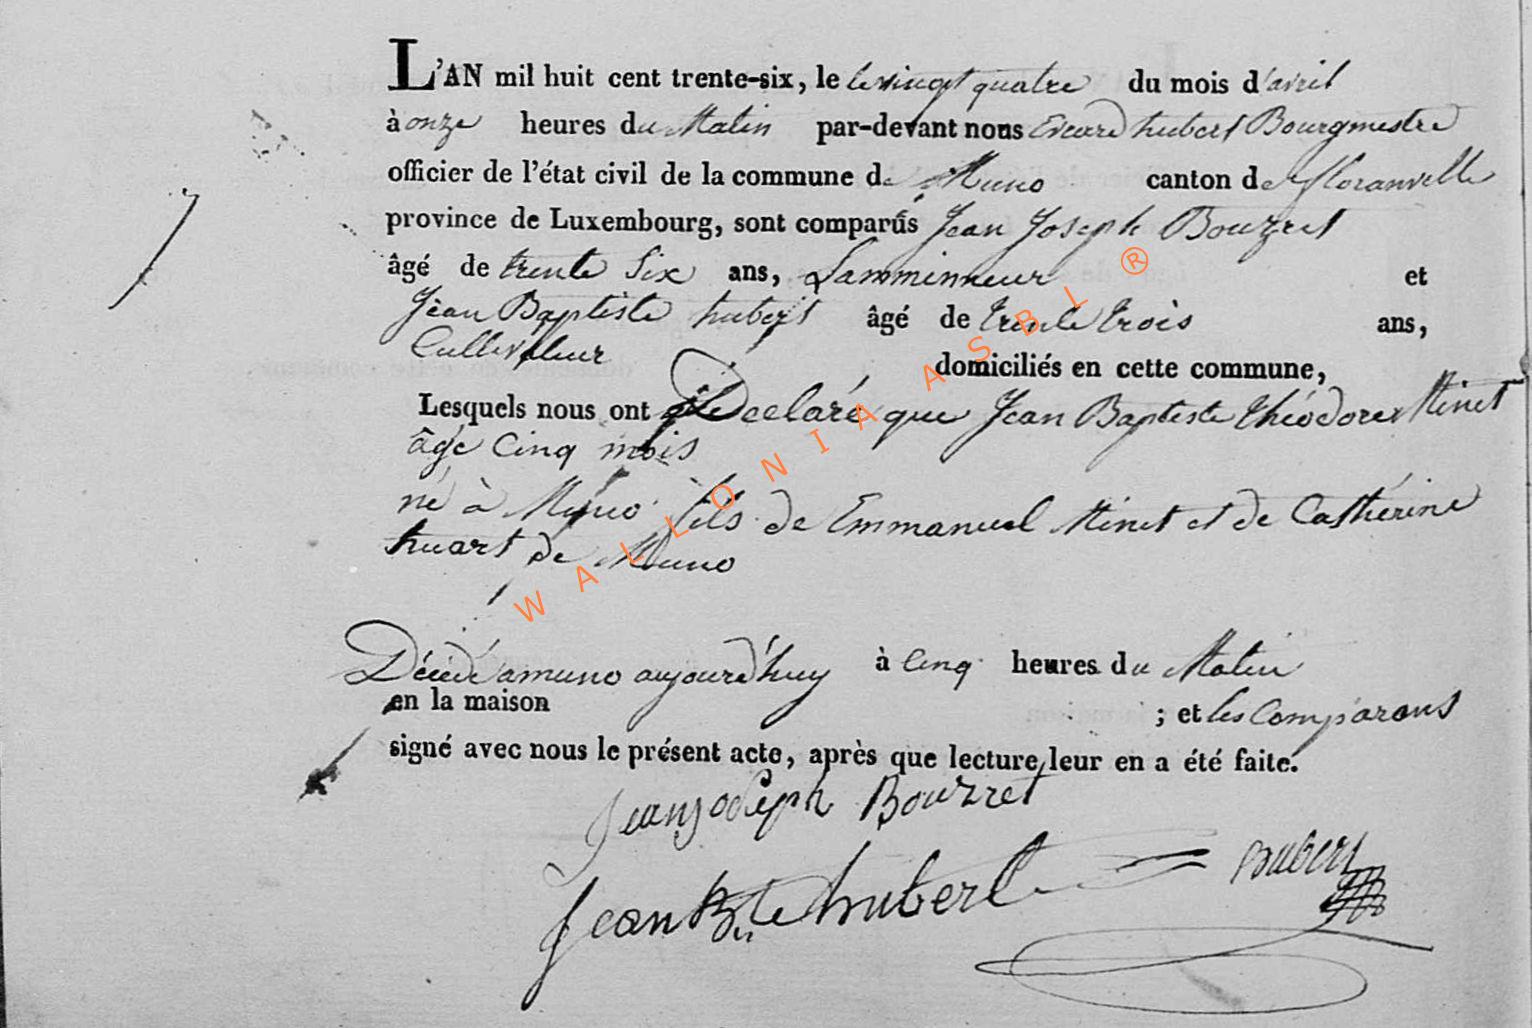 L'AN mil huit cent trente-six, le le vingt quatre du mois d'avril
à onze heures du Matin par-devant nous Evrard hubert Bourgmestre
officier de l'état civil de la commune de Muno canton de floranville
province de Luxembourg, sont comparus Jean Joseph Bouzret
âgé de trente Six ans, Lamminneur et
Jean Baptiste hubert âgé de trente trois ans,
Cultivateur domiciliés en cette commune,
Lesquels nous ont Declaré que Jean Baptiste théodore Minet
âgé Cinq mois
né à Muno fils de Emmanuel Minet et de Cathérine
huart de Muno
Décédé a muno aujourd'huy à Cinq heures du Matin
en la maison ; et les Comparans
signé avec nous le présent acte, après que lecture leur en a été faite.
Jean Joseph Bouzret
Jean Bte hubert hubert
WALLONIA ASBL ®